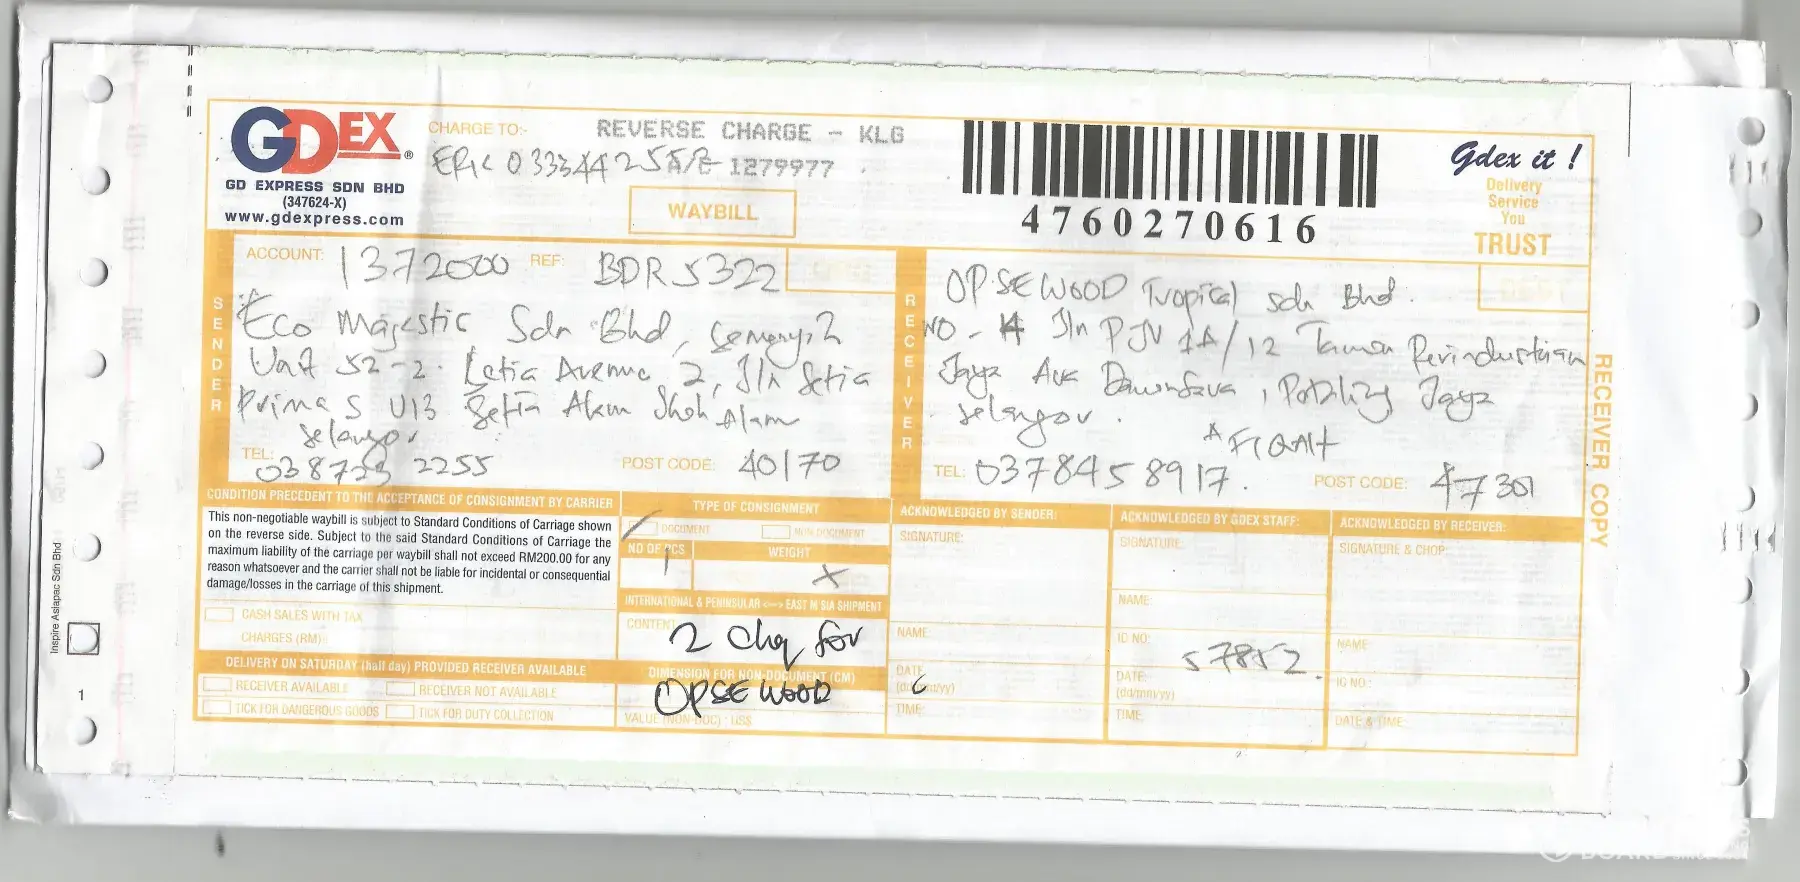 GDEX ®
GD EXPRESS SDN BHD
(347624-X)
www.gdexpress.com
CHARGE TO:- REVERSE CHARGE - KLG
ERIC 0 33344255 A/C 1279977
WAYBILL
4760270616
Gdex it !
Delivery
Service
You
TRUST
SENDER
ACCOUNT: 1372000 REF: BDR5322
Eco Majestic Sdn Bhd, Semenyih
Unit 52-2. Setia Avenue 2, Jln Setia
Prima S U13 Setia Alam Shah Alam
Selangor
TEL: 038723 2255 POST CODE: 40170
RECEIVER
OPSEWOOD Tropical sdn Bhd.
NO-4 Jln PJU 1A/12 Taman Perindustrian
Jaya Ara Damansara, Petaling Jaya
Selangor.
TEL: 0378458917. POST CODE: 47301
RECEIVER COPY
CONDITION PRECEDENT TO THE ACCEPTANCE OF CONSIGNMENT BY CARRIER
This non-negotiable waybill is subject to Standard Conditions of Carriage shown
on the reverse side. Subject to the said Standard Conditions of Carriage the
maximum liability of the carriage per waybill shall not exceed RM200.00 for any
reason whatsoever and the carrier shall not be liable for incidental or consequential
damage/losses in the carriage of this shipment.
CASH SALES WITH TAX
CHARGES (RM)
DELIVERY ON SATURDAY (half day) PROVIDED RECEIVER AVAILABLE
RECEIVER AVAILABLE RECEIVER NOT AVAILABLE
TICK FOR DANGEROUS GOODS TICK FOR DUTY COLLECTION
TYPE OF CONSIGNMENT
DOCUMENT NON DOCUMENT
NO OF PCS WEIGHT
1 X
INTERNATIONAL & PENINSULAR <--> EAST M'SIA SHIPMENT
CONTENT:
2 Chq for
DIMENSION FOR NON-DOCUMENT (CM)
OPSEWOOD
VALUE (NON-DOC) : US$
ACKNOWLEDGED BY SENDER:
SIGNATURE:
NAME:
DATE:
(dd/mm/yy)
TIME:
ACKNOWLEDGED BY GDEX STAFF:
SIGNATURE:
NAME:
ID NO: 57852
DATE:
(dd/mm/yy)
TIME:
ACKNOWLEDGED BY RECEIVER:
SIGNATURE & CHOP:
NAME:
IC NO :
DATE & TIME:
Inspire Asiapac Sdn Bhd
1